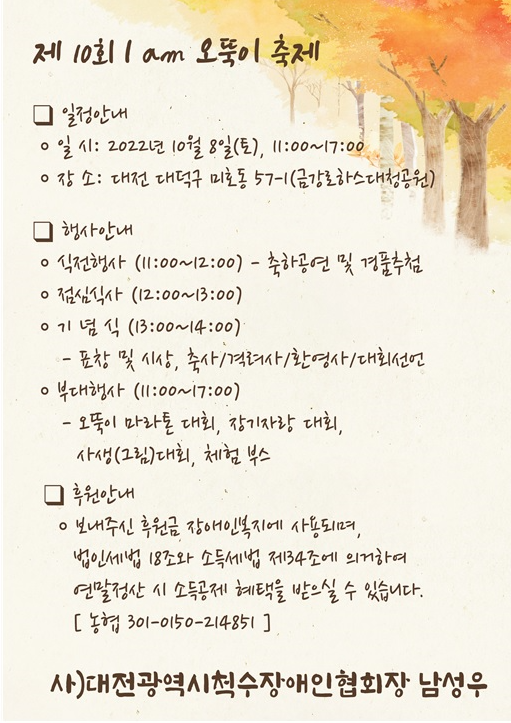 제 10회 I am 오뚝이 축제
❏ 일정안내
○ 일 시: 2022년 10월 8일(토), 11:00~17:00
○ 장 소: 대전 대덕구 미호동 57-1(금강로하스대청공원)
❏ 행사안내
○ 식전행사 (11:00~12:00) - 축하공연 및 경품추첨
○ 점심식사 (12:00~13:00)
○ 기 념 식 (13:00~14:00)
- 표창 및 시상, 축사/격려사/환영사/대회선언
○ 부대행사 (11:00~17:00)
- 오뚝이 마라톤 대회, 장기자랑 대회,
사생(그림)대회, 체험 부스
❏ 후원안내
○ 보내주신 후원금 장애인복지에 사용되며,
법인세법 18조와 소득세법 제34조에 의거하여
연말정산 시 소득공제 혜택을 받으실 수 있습니다.
[ 농협 301-0150-214851 ]
사)대전광역시척수장애인협회장 남성우